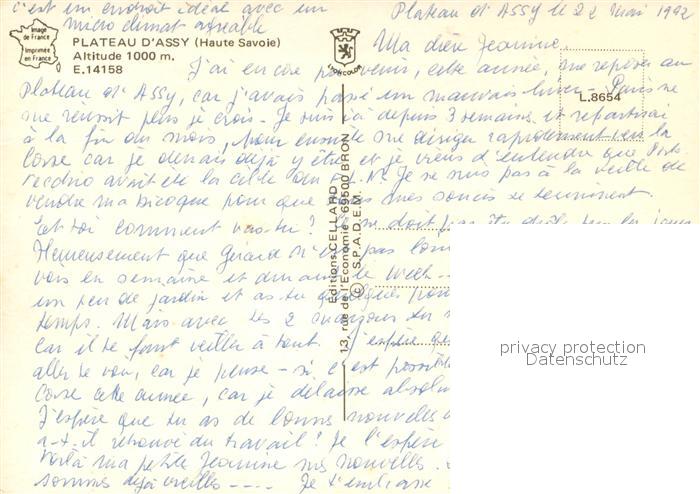 c'est un endroit idéal avec un
micro climat agréable
Plateau d'Assy le 22 mai 1992
Image
de France
Imprimée
en France
PLATEAU D'ASSY (Haute Savoie)
Altitude 1000 m.
E.14158
LYON COLOR
L.8654
Ma chère Jeannine
J'ai encore pu venir, cette année, me reposer au
Plateau d'Assy, car j'avais passé un mauvais hiver - Paris ne
me réussit plus je crois - Je suis ici depuis 3 semaines et repartirai
à la fin du mois, pour ensuite me diriger rapidement vers la
Corse car je devrais déjà y être et je viens d'entendre que
avait été la cible du F.L.N. Je ne suis pas à la veille de
vendre ma bicoque pour que mes soucis se terminent.
Et toi comment vas-tu? ne doit pas être drôle les jours
Heureusement que Gérard n'est pas loin
vois en semaine et durant le week-
un peu de jardin et as-tu quelques
temps. Mais avec tes 2 maisons tu
car il te faut veiller à tout. J'espère
aller te voir, car je pense - si c'est possible
Corse cette année, car je délaisse
J'espère que tu as de bonnes nouvelles
a-t-il retrouvé du travail? Je l'espère
Voilà ma petite Jeannine mes nouvelles.
sommes déjà vieilles ---- Je t'embrasse
Editions CELLARD
13, rue de l'Economie 69500 BRON
© S.P.A.D.E.M.
privacy protection
Datenschutz